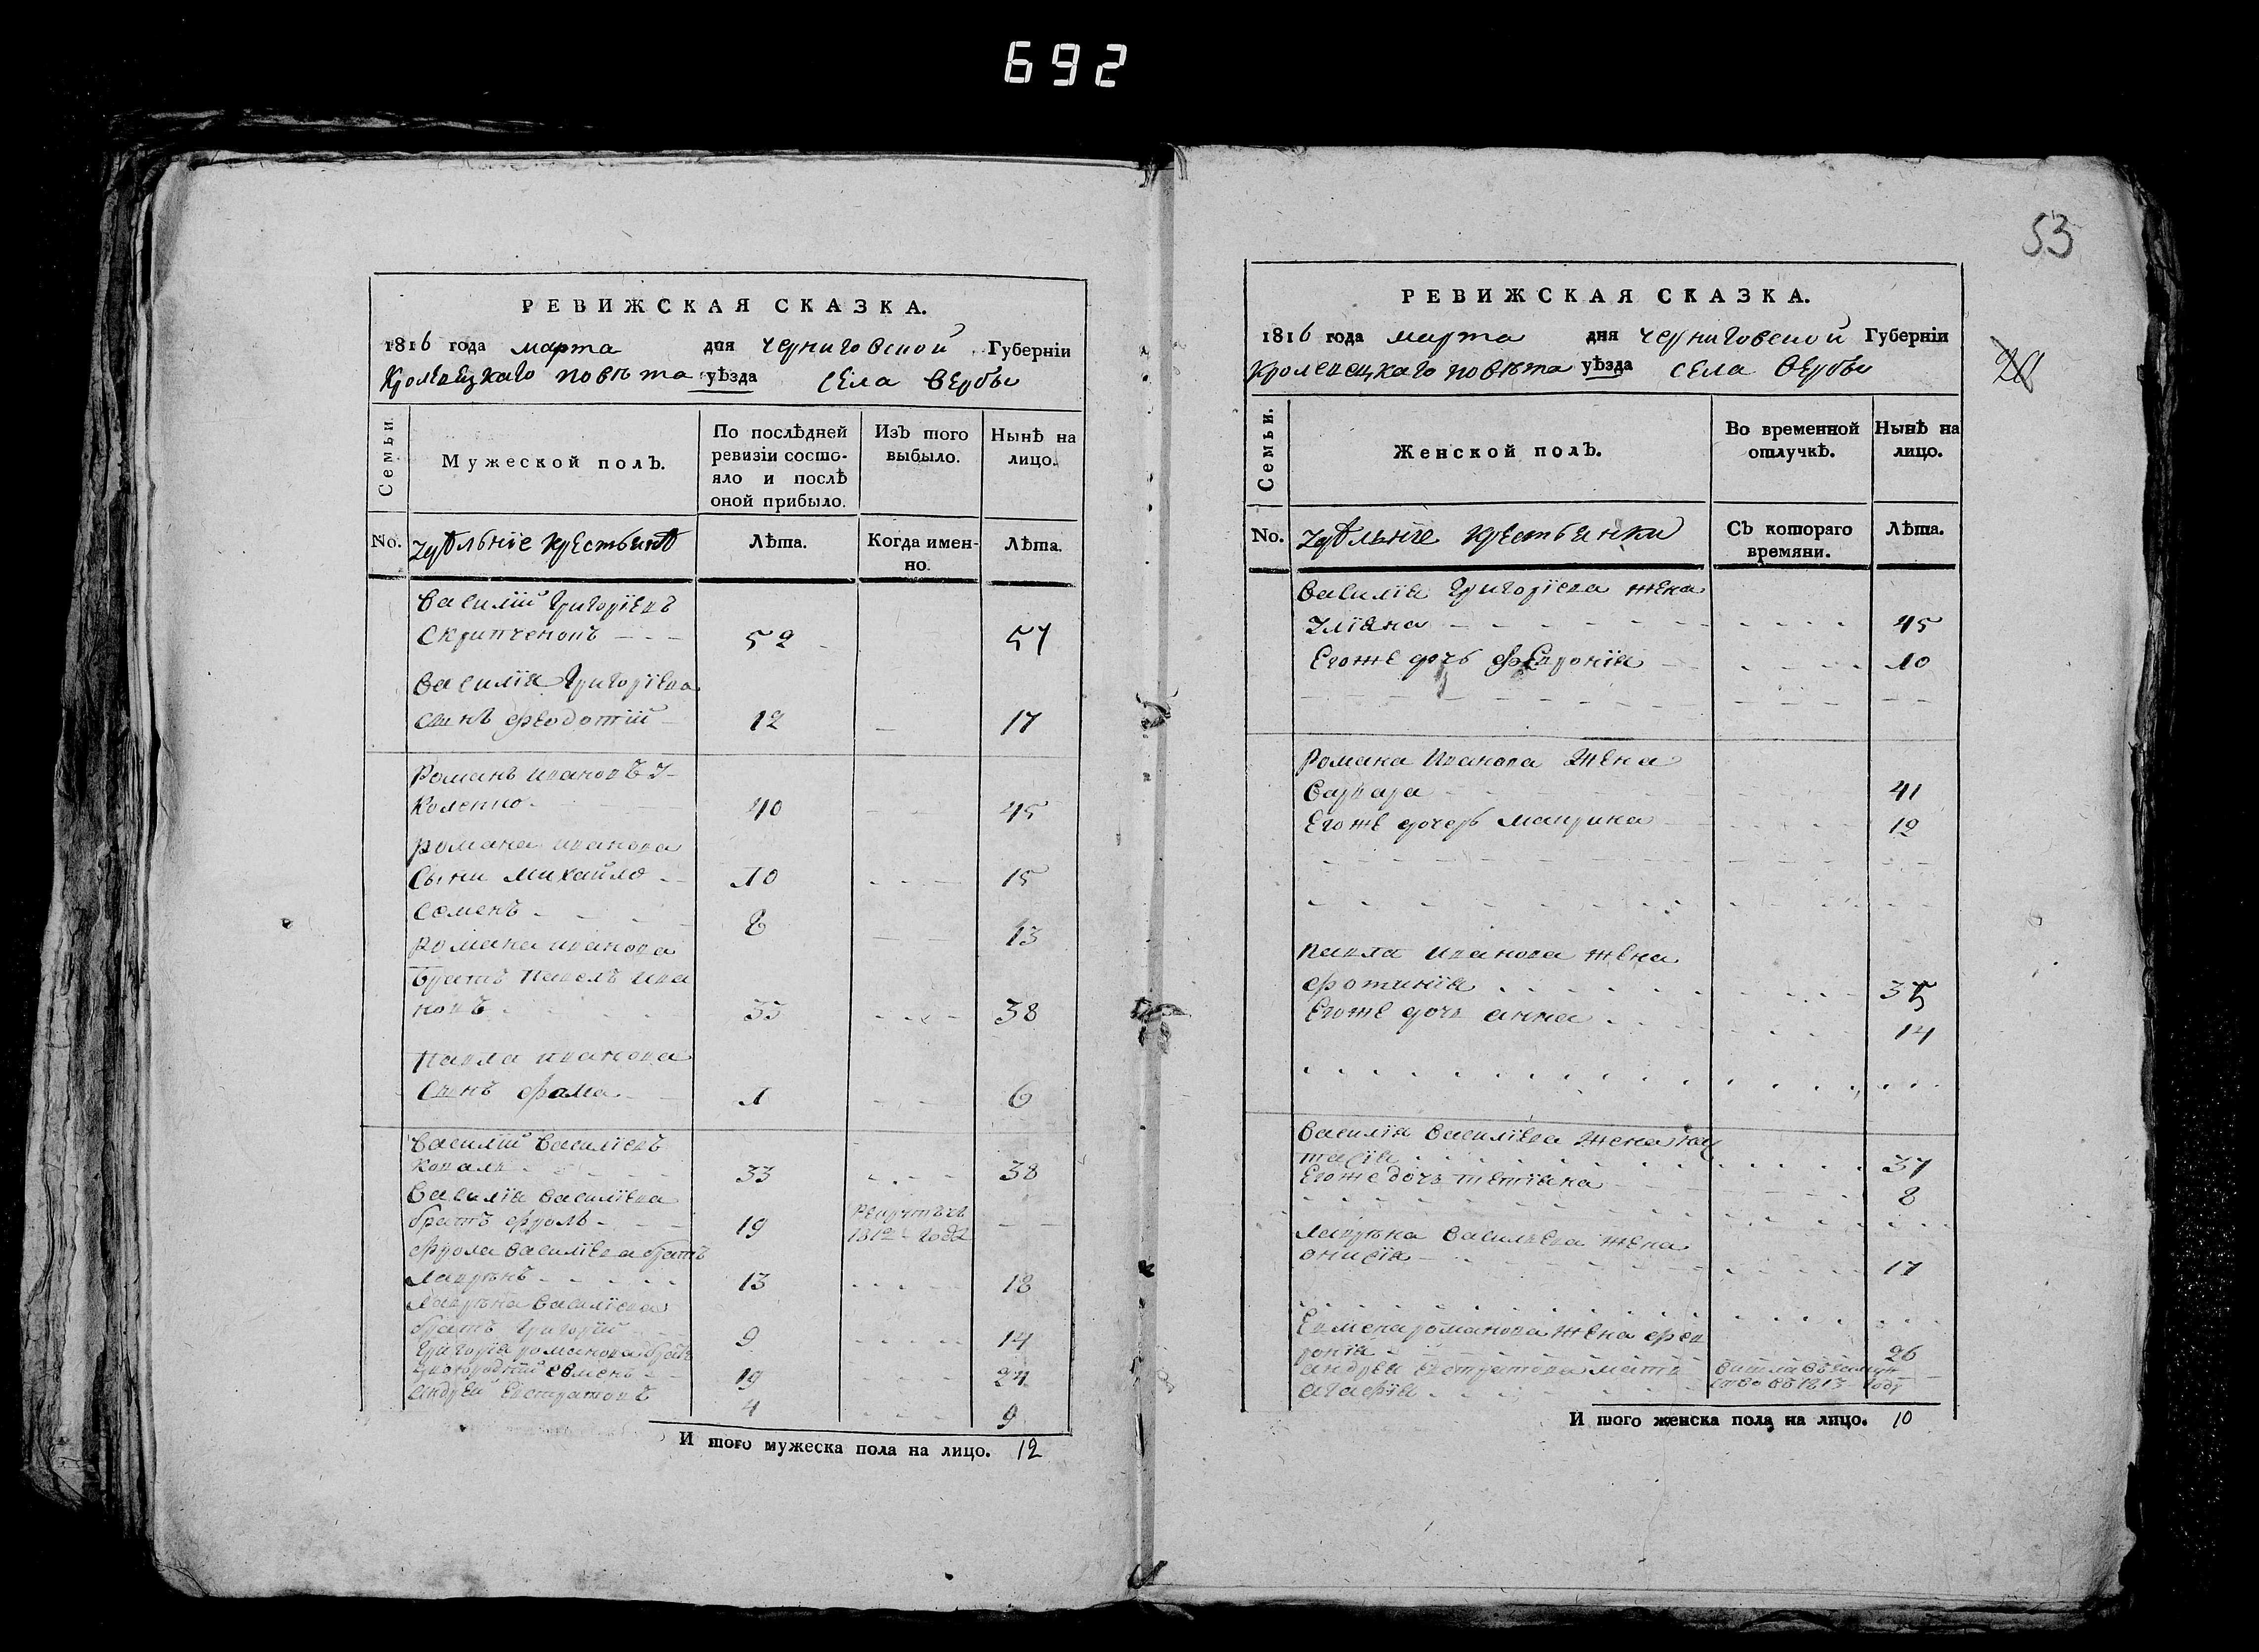 692
РЕВИЖСКАЯ СКАЗКА.
1816 года марта дня черниговской Губерніи
Кролевецкаго повѣта уѣзда села вербы
Семьи.
Мужеской полъ.
По послѣдней ревизіи состо-
яло и послѣ оной прибыло.
Изъ того выбыло.
Нынѣ на лицо.
No. удѣльніе крестьянѣ
Лѣта.
Когда имен-
но.
Лѣта.
Василій Григоріевъ
Скрипченокъ 52 57
Василія Григоріева
синъ Феодотій 12 17
Романъ ивановъ
40 45
романа иванова
Сыни Михайло 10 15
Семенъ 8 13
романа иванова
братъ павелъ ива
новъ 33 38
Павла иванова
Синъ фома 1 6
Василій Василіевъ
Коваль 33 38
Василія Василіева
братъ фролъ 19 1812 года
фрола Василіева братъ
Лаврѣнъ 13 18
Лаврѣна Василіева
братъ Григорій 9 14
Григорія романова братъ
19 24
андрей Евстратовъ 4 9
И того мужеска пола на лицо. 12
53
РЕВИЖСКАЯ СКАЗКА.
1816 года марта дня черниговской Губерніи
Кролевецкаго повѣта уѣзда села вербы
20
Семьи.
Женской полъ.
Во временной отлучкѣ.
Нынѣ на лицо.
No. удѣльніе крестьянки
Съ котораго
времяни.
Лѣта.
Василія Григоріева жена
Уліяна 45
Егоже дочь февронія 10
Романа иванова жена
варвара 41
Егоже дочерь маврика 12
павла иванова жена
фотинія 35
Егоже дочь анна 14
Василія Василіева жена нас
тасія 37
Егоже дочь тетіяна 8
Лаврѣна Василіева жена
онисія 17
романова жена фев
ронія 26
андрея Евстратова мать
агафія 1813 году
И того женска пола на лицо. 10